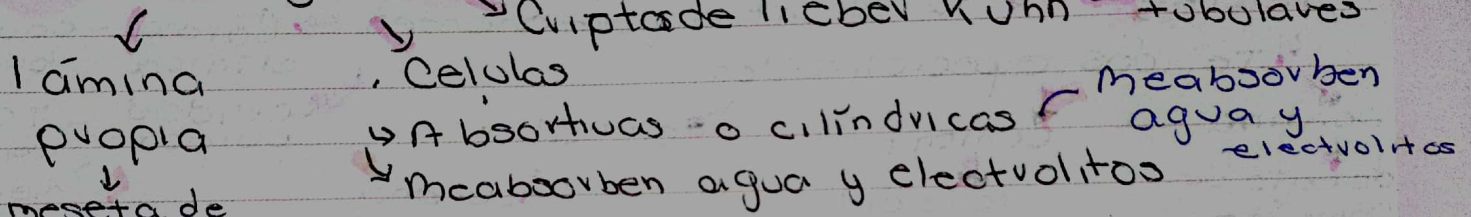 Criptasde lieber kuhn tubulares
lámina
propia
meseta de
. Celulas
Absortivas o cilíndricas
reabsorben
agua y
electrolitos
reabsorben agua y electrolitos